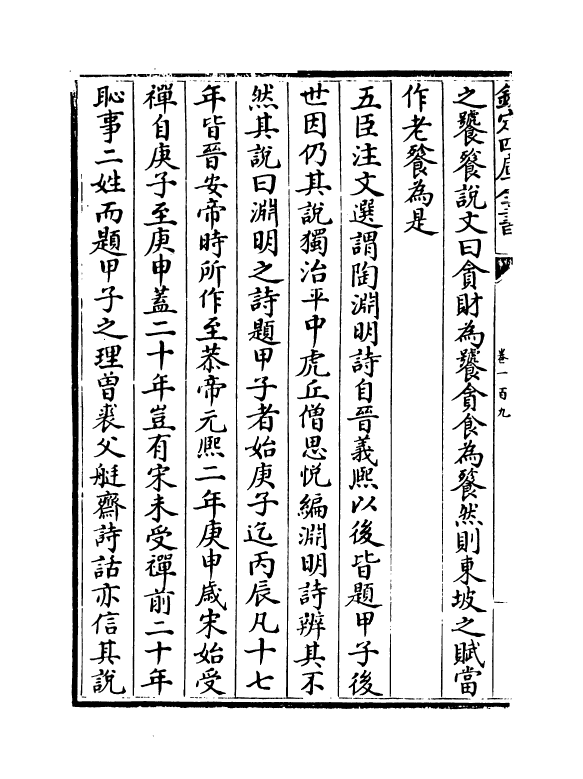 欽定四庫全書
卷一百九
之饕餮説文曰貪財為饕貪食為餮然則東坡之賦當
作老餮為是
五臣注文選謂陶淵明詩自晉義熙以後皆題甲子後
世因仍其説獨治平中虎丘僧思悦編淵明詩辨其不
然其說曰淵明之詩題甲子者始庚子迄丙辰凡十七
年皆晉安帝時所作至恭帝元熙二年庚申歲宋始受
禪自庚子至庚申蓋二十年豈有宋未受禪前二十年
恥事二姓而題甲子之理曽裘父艇齋詩話亦信其説